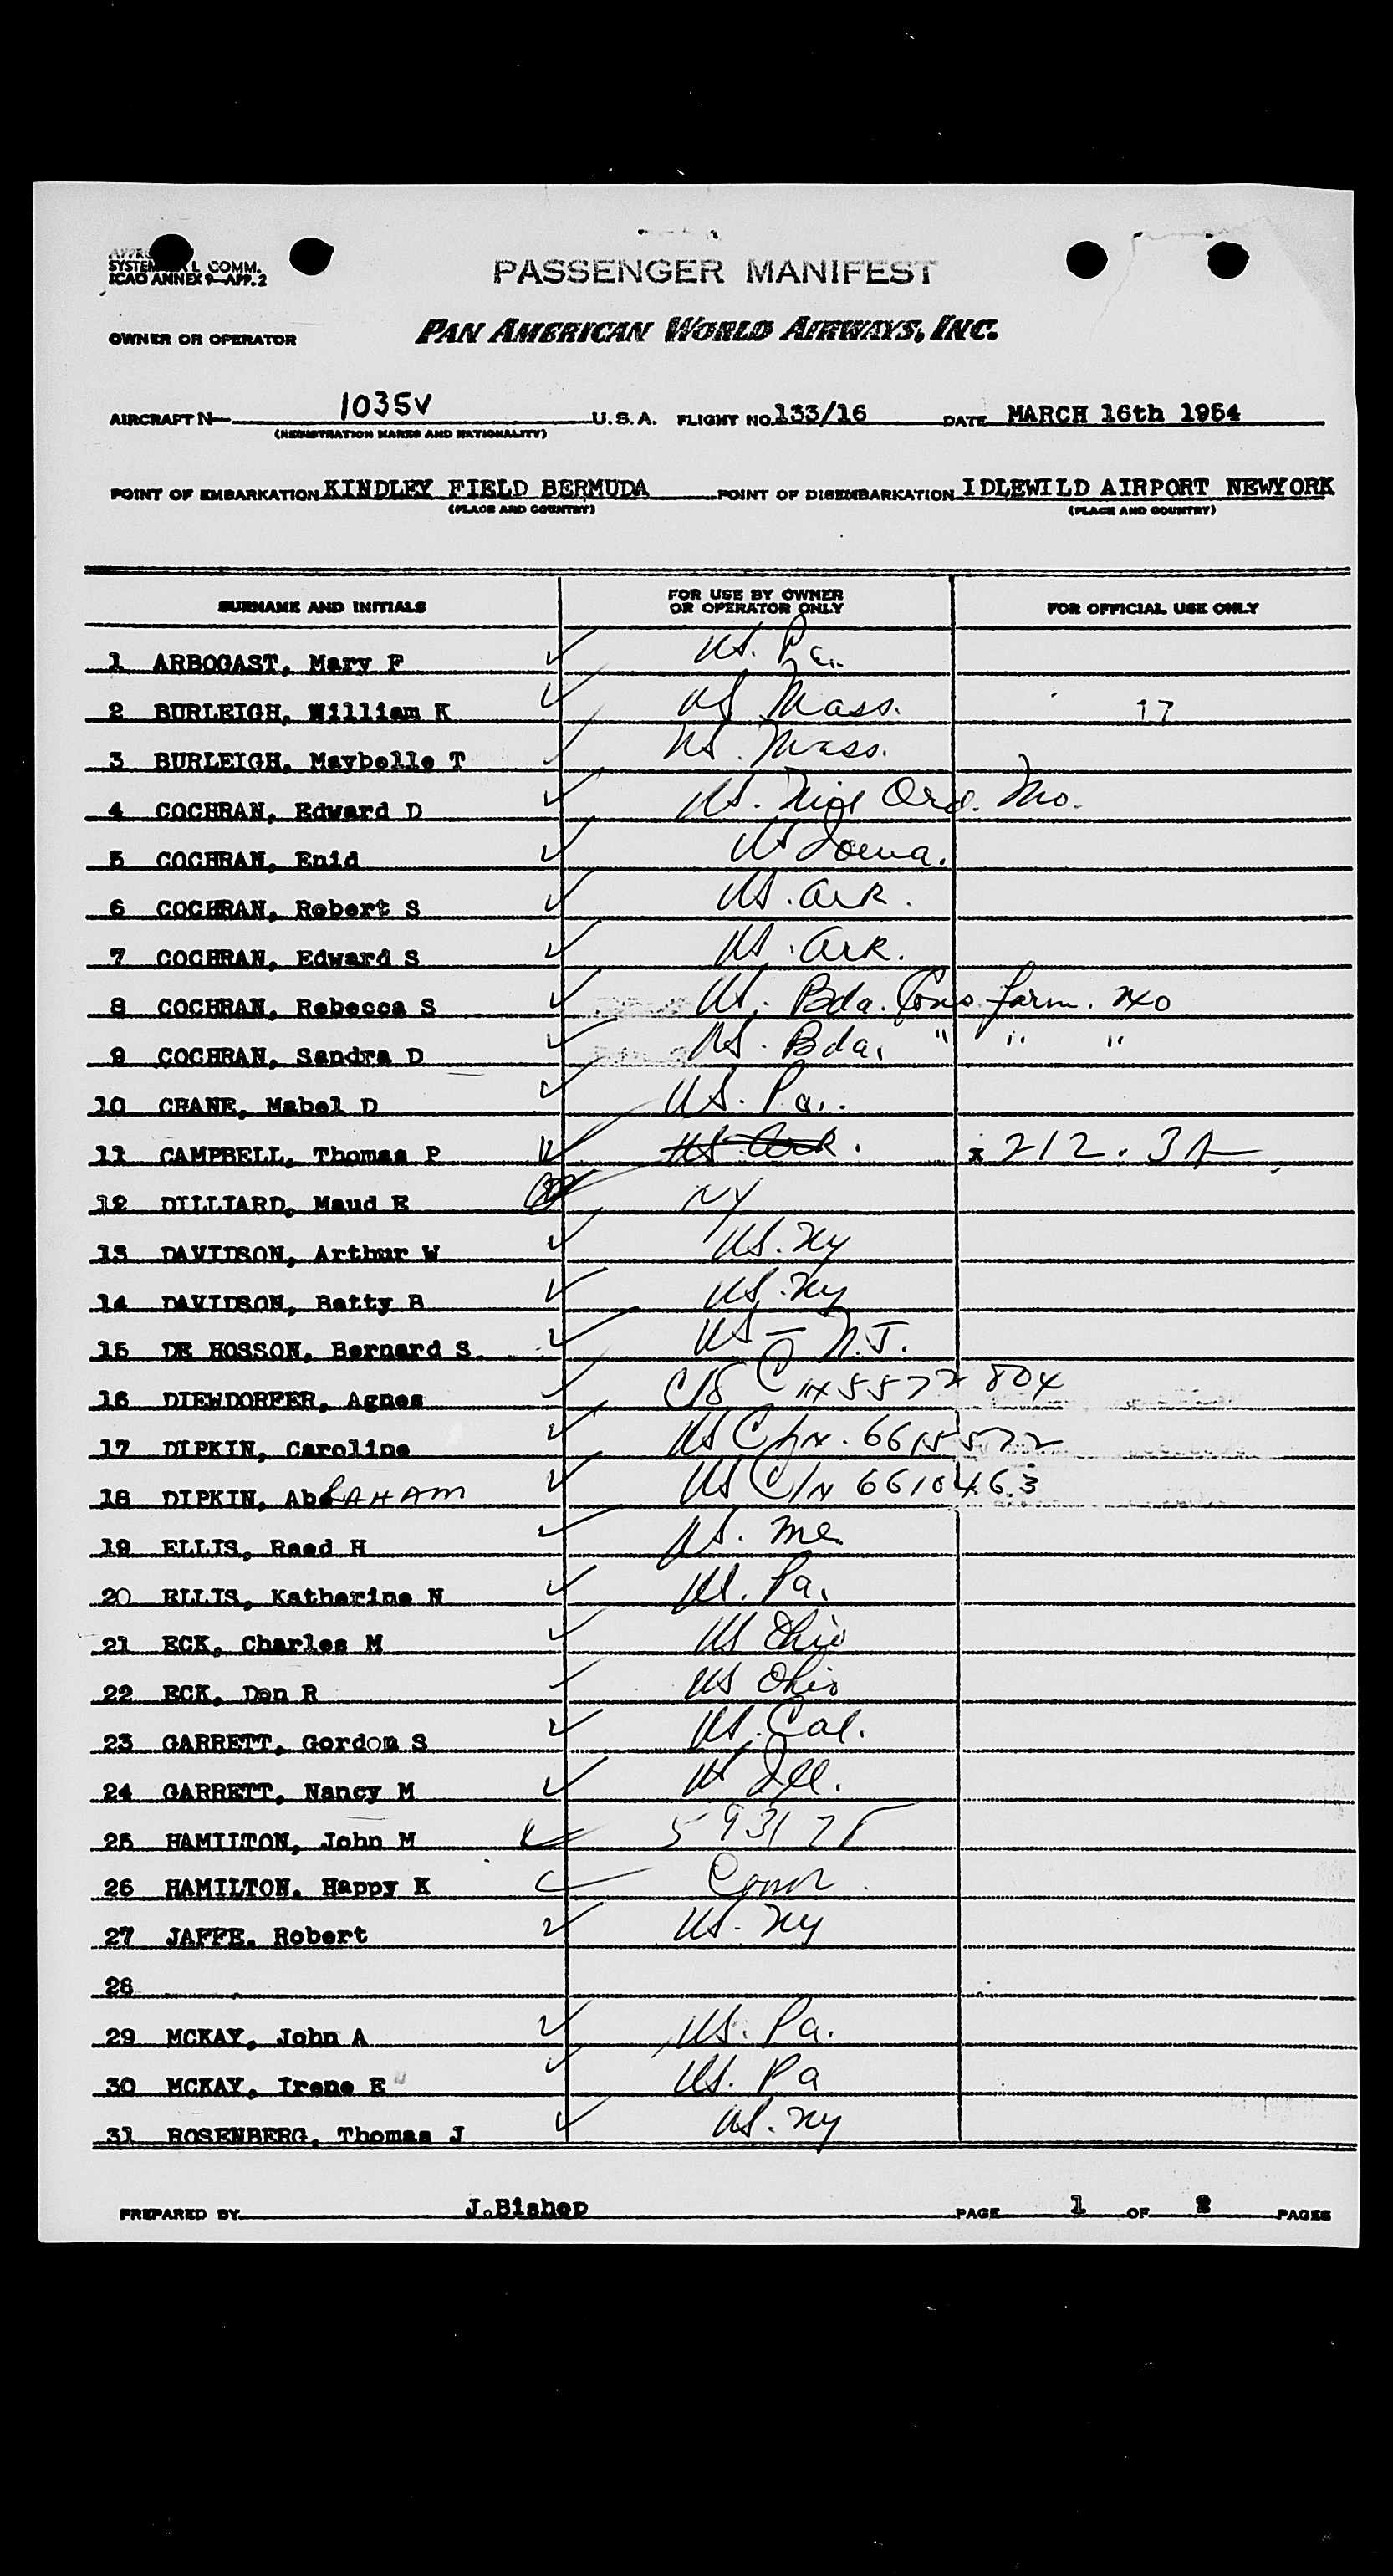 SYSTEM L COMM.
ICAO ANNEX 9—APP. 2
PASSENGER MANIFEST
OWNER OR OPERATOR PAN AMERICAN WORLD AIRWAYS, INC.
AIRCRAFT N— 1035V U.S.A. FLIGHT NO. 133/16 DATE MARCH 16th 1954
(REGISTRATION MARKS AND NATIONALITY)
POINT OF EMBARKATION KINDLEY FIELD BERMUDA POINT OF DISEMBARKATION IDLEWILD AIRPORT NEWYORK
(PLACE AND COUNTRY) (PLACE AND COUNTRY)
SURNAME AND INITIALS FOR USE BY OWNER OR OPERATOR ONLY FOR OFFICIAL USE ONLY
1 ARBOGAST, Mary F ✓ US. Pa.
2 BURLEIGH, William K ✓ US Mass. 17
3 BURLEIGH, Maybelle T ✓ US. Mass.
4 COCHRAN, Edward D ✓ US. Mo.
5 COCHRAN, Enid ✓ US Iowa.
6 COCHRAN, Robert S ✓ US. Ark.
7 COCHRAN, Edward S ✓ US. Ark.
8 COCHRAN, Rebecca S ✓ US. Bda. Cons. farm.
9 COCHRAN, Sandra D ✓ US. Bda. " " "
10 CRANE, Mabel D ✓ US. Pa.
11 CAMPBELL, Thomas P ✓ US Ark. x 212.3A
12 DILLIARD, Maud E NY
13 DAVIDSON, Arthur W ✓ US. NY
14 DAVIDSON, Betty B ✓ US. NY
15 DE HOSSON, Bernard S ✓ US — N.J.
16 DIEWDORFER, Agnes ✓ 5572804
17 DIPKIN, Caroline ✓ US C/N. 6615572
18 DIPKIN, AbRAHAM ✓ US C/N 6610463
19 ELLIS, Reed H ✓ US. Me.
20 ELLIS, Katherine N ✓ US. Pa.
21 ECK, Charles M ✓ US Ohio
22 ECK, Don R ✓ US Ohio
23 GARRETT, Gordon S ✓ US. Cal.
24 GARRETT, Nancy M ✓ US Ill.
25 HAMILTON, John M ✓
26 HAMILTON, Happy K Conn
27 JAFFE, Robert ✓ US. NY
28
29 MCKAY, John A ✓ US. Pa.
30 MCKAY, Irene E ✓ US. Pa
31 ROSENBERG, Thomas J ✓ US. NY
PREPARED BY J.Bishop PAGE 1 OF 2 PAGES